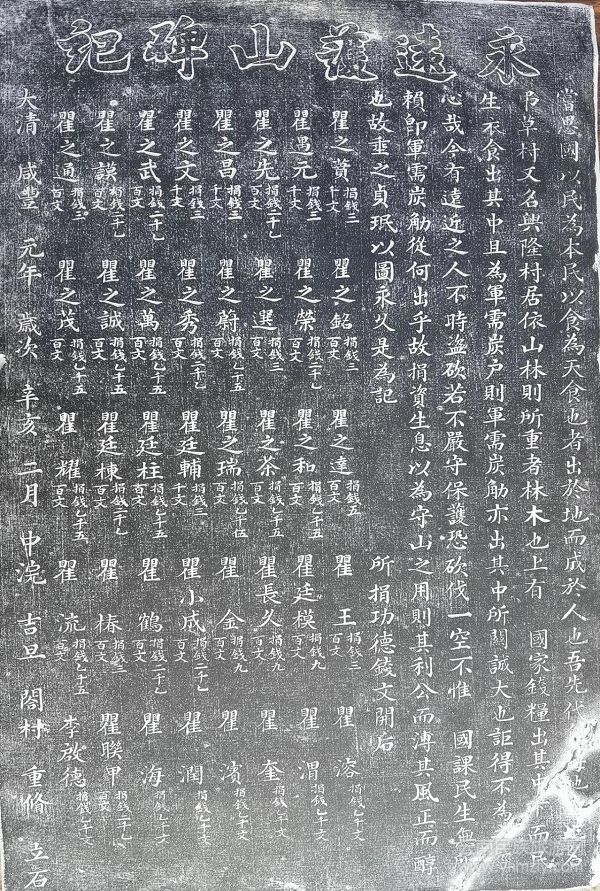 永遠護山碑記
嘗思國以民為本民以食為天食也者出於地而成於人也吾先代
草村又名興隆村居依山林則所重者林木也上有 國家錢糧出其中下而民
生衣食出其中且為軍需炭戶則軍需炭觔亦出其中所關誠大也詎得不為
心哉今有遠近之人不時盜砍若不嚴守保護恐砍伐一空不惟 國課民生無所
賴即軍需炭觔從何出乎故捐資生息以為守山之用則其利公而溥其風正而醇
也故垂之貞珉以圖永久是為記 所捐功德錢文開后
瞿之賛捐錢三千文 瞿之銘捐錢三百文 瞿之達捐錢五百文 瞿王捐錢三百文 瞿溶捐錢乙千文
瞿昌元捐錢三千文 瞿之榮捐錢二千乙百文 瞿之和捐錢乙千五百文 瞿廷模捐錢九百文 瞿渭捐錢乙千文
瞿之先捐錢二千乙百文 瞿之選捐錢三百文 瞿之茶捐錢乙千五百文 瞿長久捐錢九百文 瞿奎捐錢乙千文
瞿之昌捐錢三千文 瞿之蔚捐錢乙千五百文 瞿之瑞捐錢乙千伍百文 瞿金捐錢九百文 瞿濱捐錢乙千文
瞿之文捐錢三千文 瞿之秀捐錢二千乙百文 瞿廷輔捐錢三千文 瞿小成捐錢二千乙百文 瞿潤捐錢乙千文
瞿之武捐錢二千乙百文 瞿之萬捐錢乙千五百文 瞿廷柱捐錢乙千五百文 瞿鶴捐錢二千乙百文 瞿海捐錢乙千文
瞿之謨捐錢二千乙百文 瞿之誠捐錢乙千五百文 瞿廷棟捐錢二千乙百文 瞿椿捐錢三百文 瞿聯甲捐錢二千乙百文
瞿之通捐錢三百文 瞿之茂捐錢乙千五百文 瞿耀捐錢乙千五百文 瞿流捐錢乙千五百文 李啟德捐錢乙千文
大清 咸豐 元年 歲次 辛亥 二月 中浣 吉旦 閤村 重脩 立石